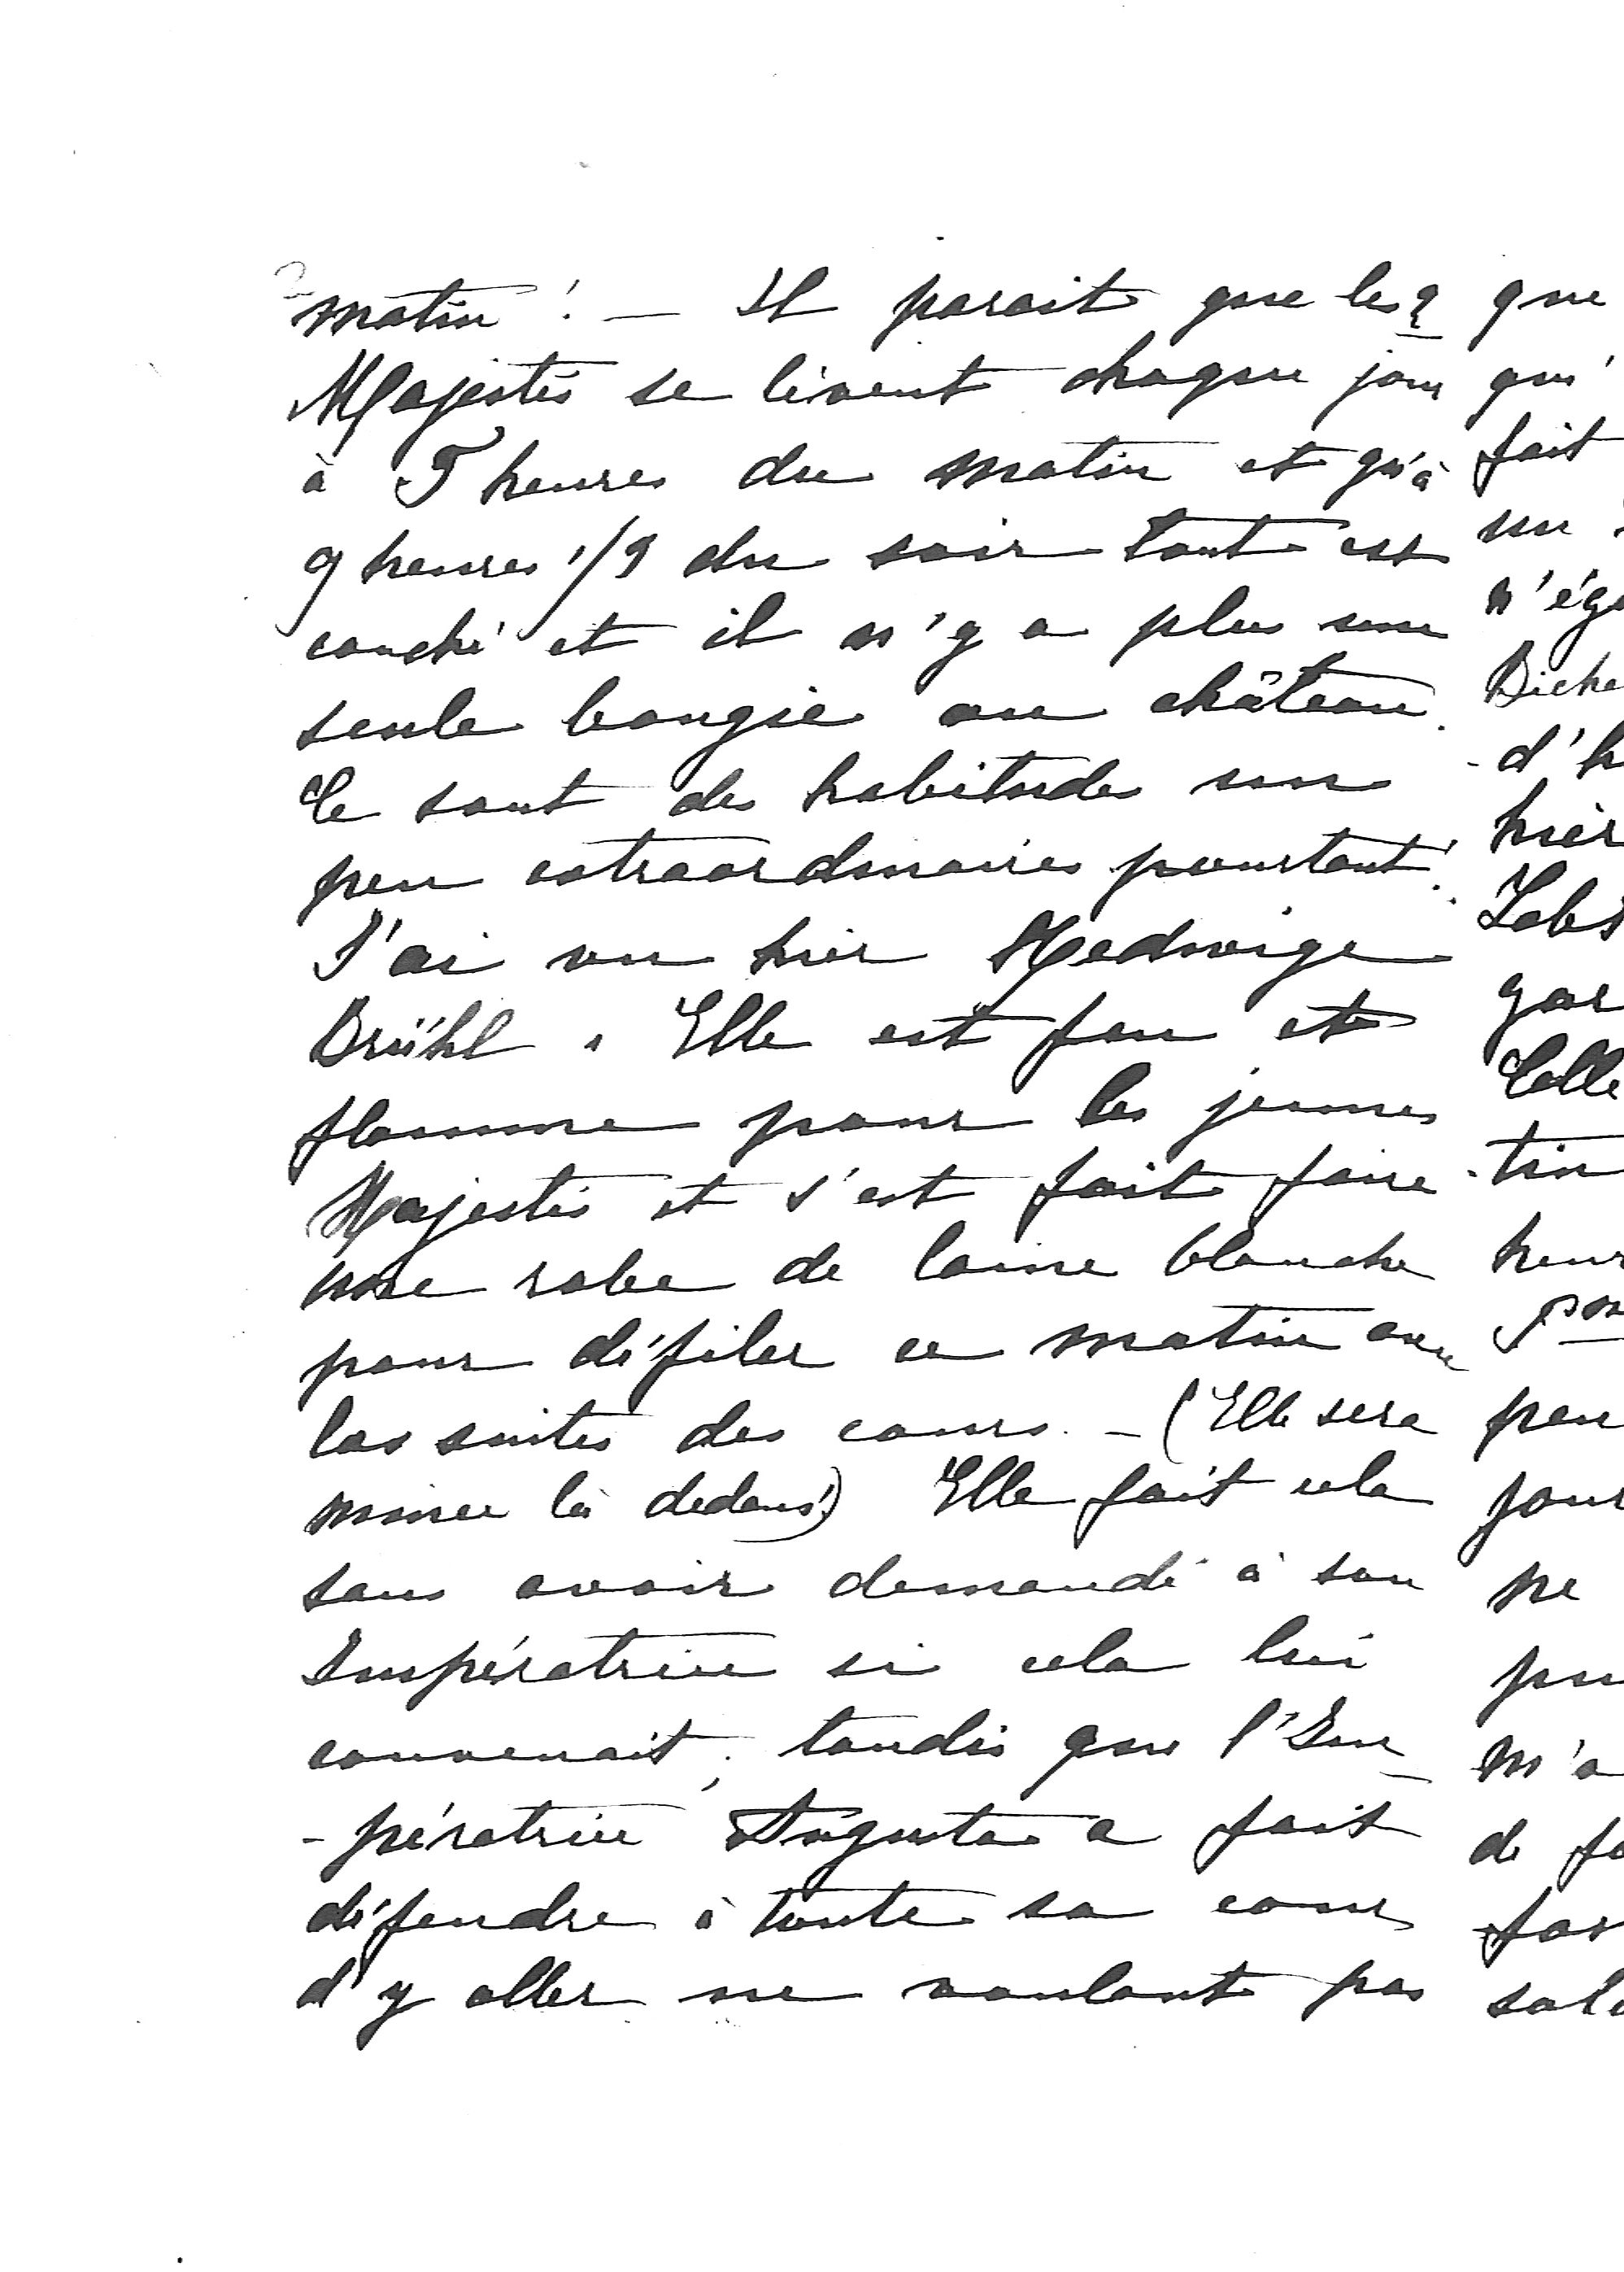 matin ! — Il parait que les 2
Majestés se lèvent chaque jour
à 5 heures du matin et qu'à
9 heures 1/2 du soir tout est
couché et il n'y a plus une
seule bougie au château.
Ce sont des habitudes un
peu extraordinaires pourtant !
J'ai vu hier Hedwige
Brühl. Elle est feu et
flamme pour les jeunes
Majestés et s'est fait faire
une robe de laine blanche
pour défiler ce matin avec
les suites des cours. — (Elle sera
mince là dedans !) Elle fait cela
sans avoir demandé à son
Impératrice si cela lui
convenait, tandis que l'Im-
-pératrice Augusta a fait
défendre à toute sa cour
d'y aller ne voulant pas
que
qui
fait
un
n'ég
Biche
-d'h
hier
gar
-tin
heur
peu
jour
ne
pu
m'a
de fa